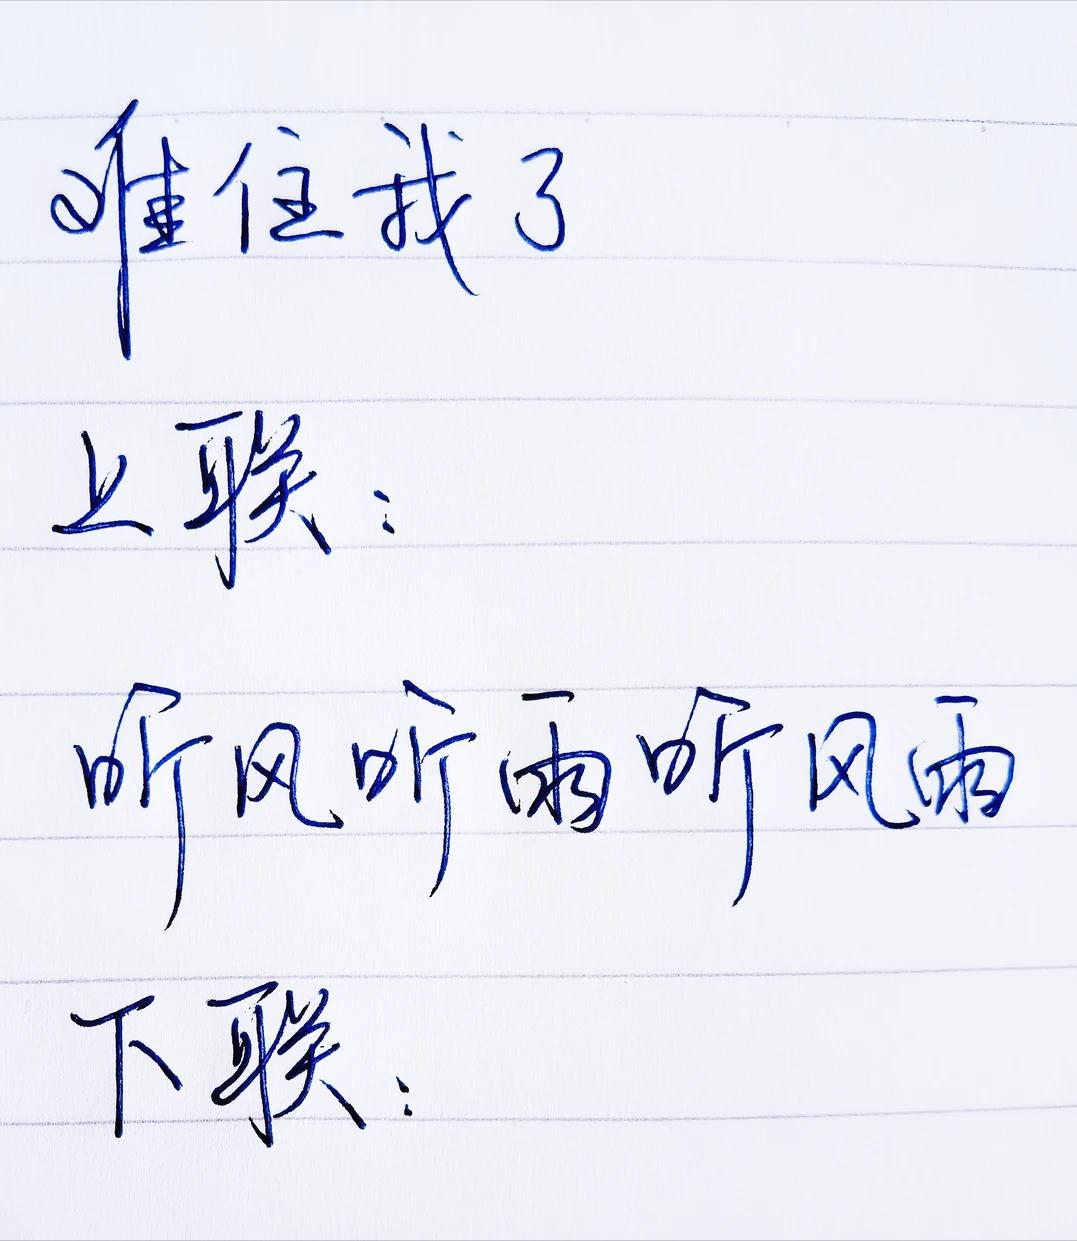 难住我了
上联：
听风听雨听风雨
下联：